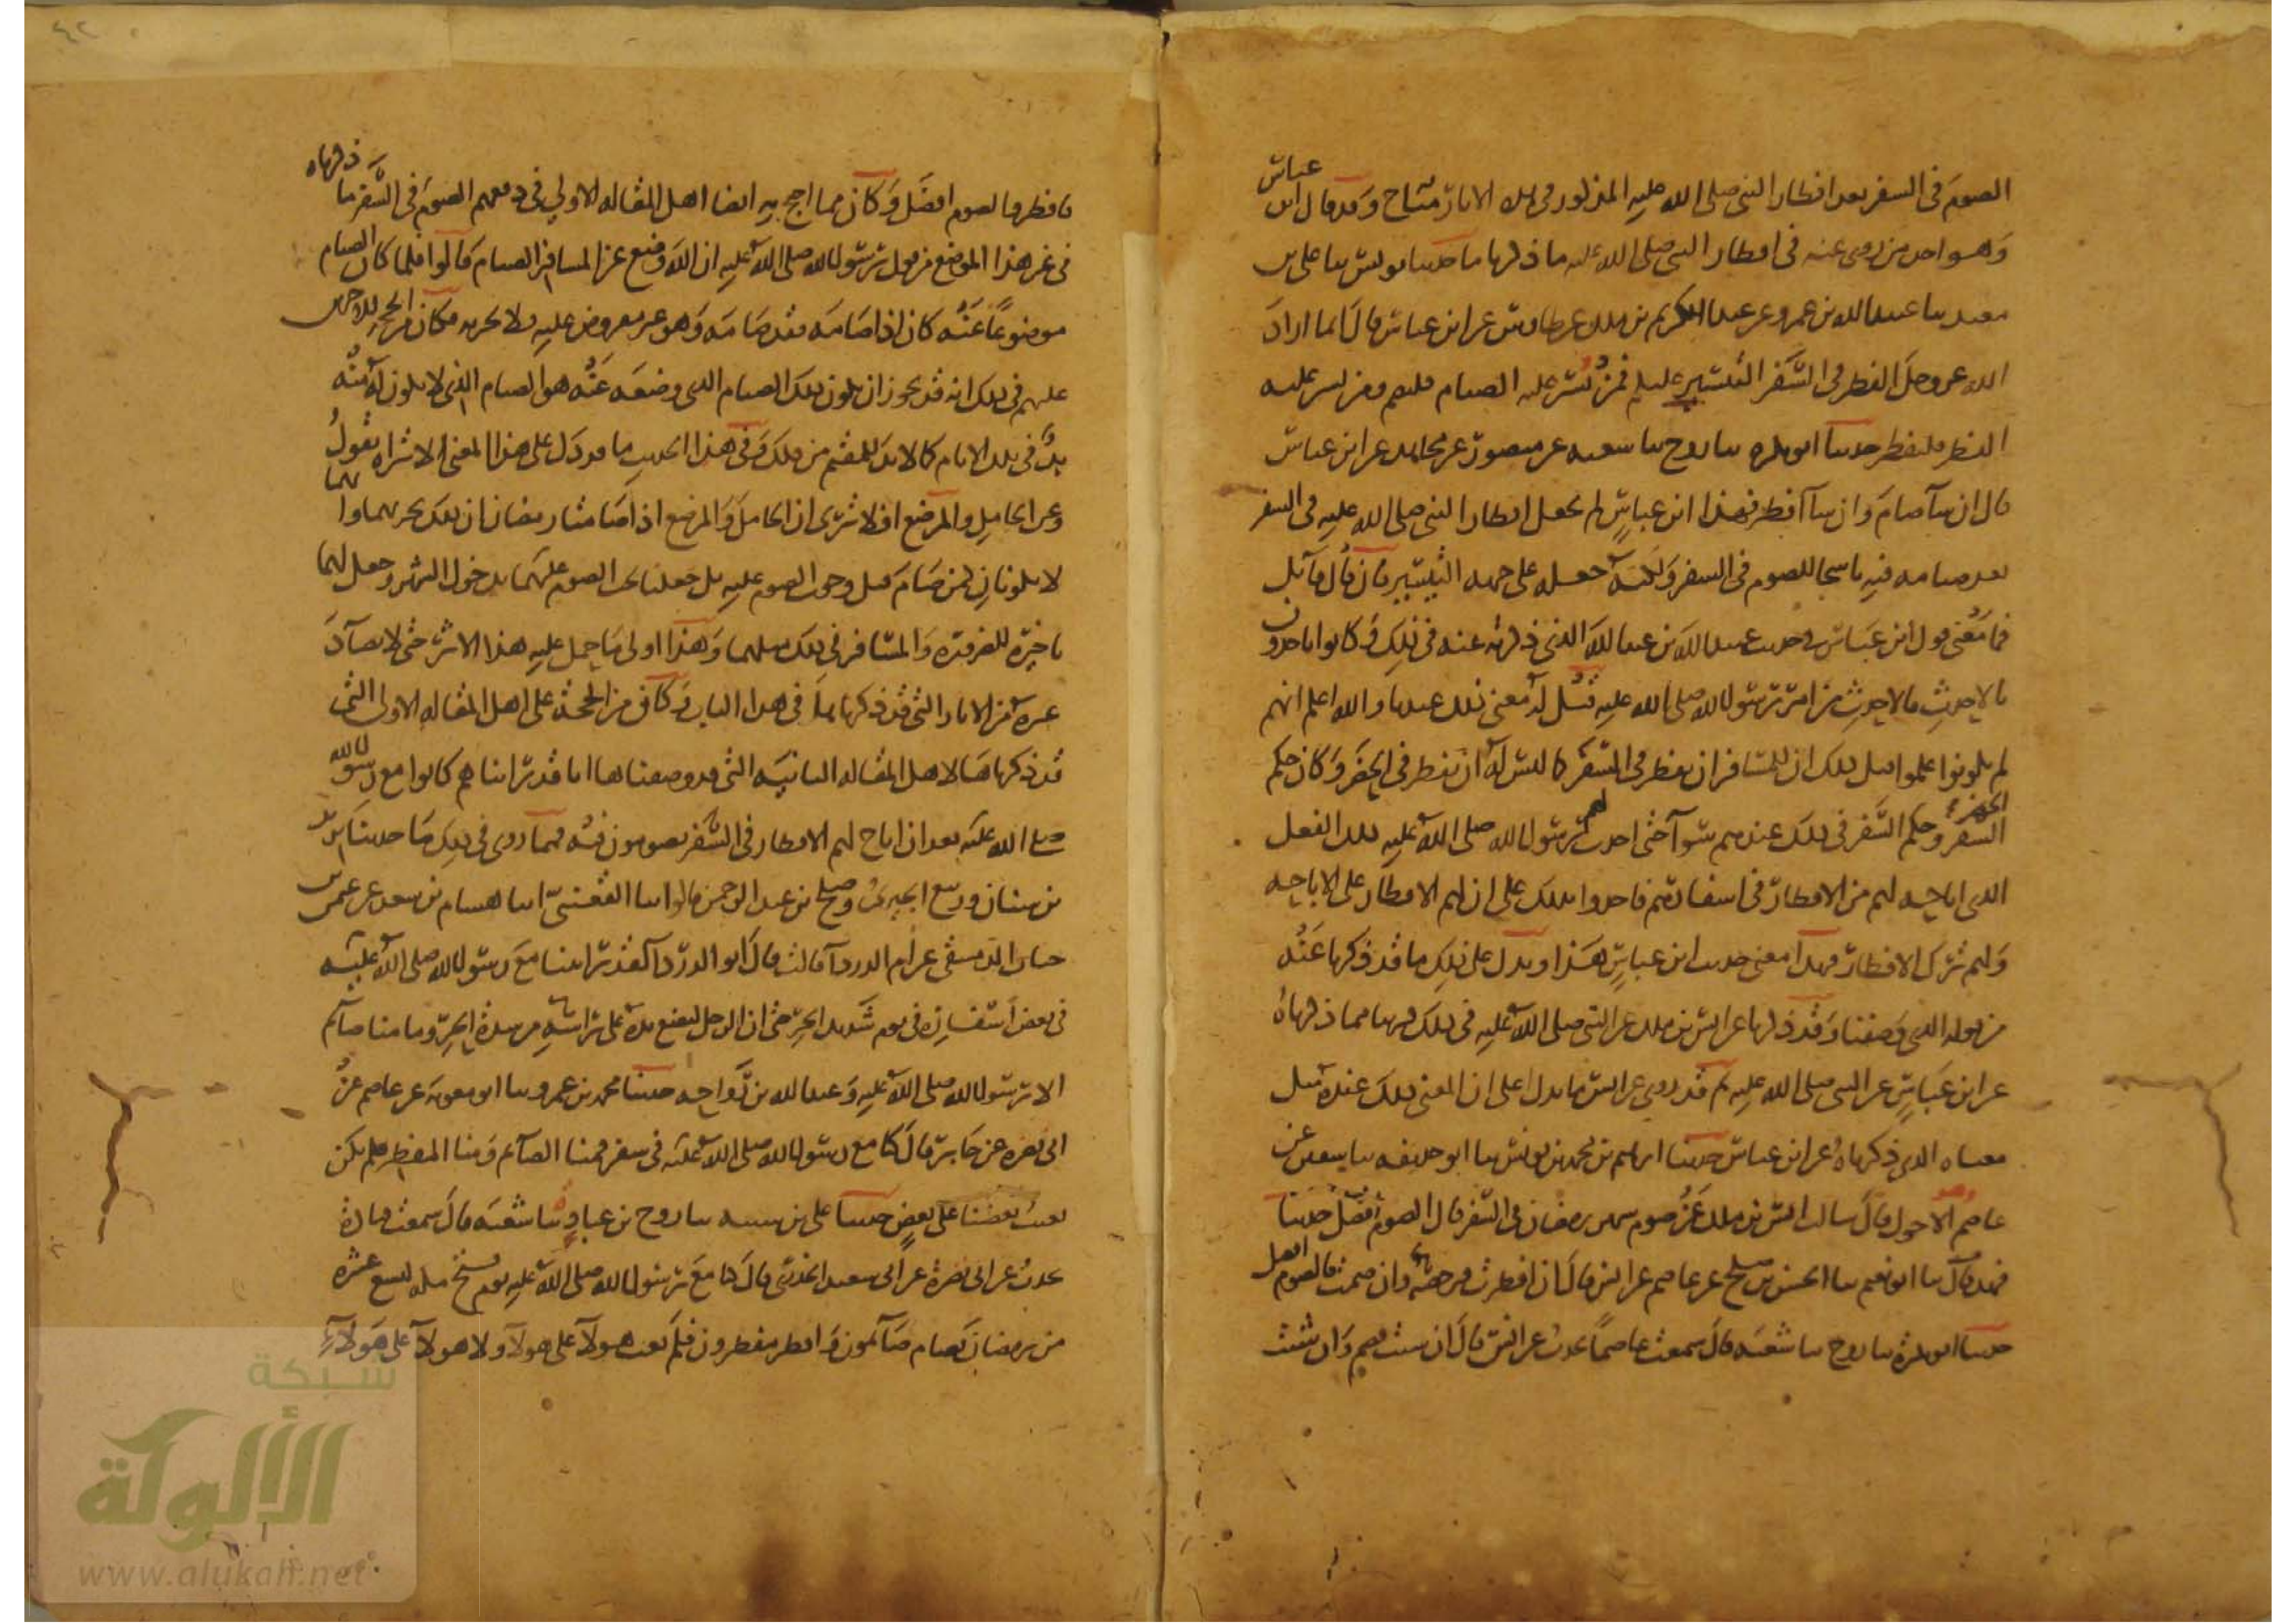 الصوم في السفر بعد افطار النبي صلى الله عليه المذكور في هذه الاثار مباح وقد قال ابن عباس
وهو احد من روى عنه في افطار النبي صلى الله عليه ما ذكرنا ما حدثنا يونس ثنا علي بن
معبد ثنا عبيد الله بن عمرو عن عبد الكريم بن ملك عن طاوس عن ابن عباس قال انما اراد
الله عز وجل الفطر في السفر التيسير عليكم فمن يسر عليه الصيام فليصم ومن يسر عليه
الفطر فليفطر حدثنا ابو بكره ثنا روح ثنا شعبه عن منصور عن مجاهد عن ابن عباس
قال ان شآ صام وان شآ افطر فهذا ابن عباس لم يجعل افطار النبي صلى الله عليه في السفر
بعد صيامه فيه ناسخا للصوم في السفر ولكنه جعله على جهه التيسير فان قال قايل
فما معنى قول ابن عباس في حديث عبيد الله بن عبد الله الذي ذكرته عنه في ذلك وكانوا ياخذون
بالاحدث فالاحدث من امر رسول الله صلى الله عليه قيل له معنى ذلك عندنا والله اعلم انهم
لم يكونوا علموا قبل ذلك ان للمسافر ان يفطر في السفر كما ليس له ان يفطر في الحضر وكان حكم
الحضر
السفر وحكم السفر في ذلك عندهم سوآ حتى احدث لهم رسول الله صلى الله عليه ذلك الفعل
الذي اباحه لهم من الافطار في اسفارهم فاخذوا بذلك على ان لهم الافطار على الاباحه
ولهم ترك الافطار فهذا معنى حديث ابن عباس هذا ويدل على ذلك ما قد ذكرنا عنه
من قوله الذي وصفنا وقد ذكرنا عن انس بن ملك عن النبي صلى الله عليه في ذلك قريبا مما ذكرناه
عن ابن عباس عن النبي صلى الله عليه ثم قد روي عن انس ما يدل على ان المعنى في ذلك عنده مثل
معناه الذي ذكرناه عن ابن عباس حدثنا ابراهيم بن محمد بن يونس ثنا ابو حذيفه ثنا سفين عن
عاصم الاحول قال سالت انس بن ملك عن صوم شهر رمضان في السفر قال الصوم افضل حدثنا
فهد قال ثنا ابو نعيم ثنا الحسن بن صلح عن عاصم عن انس قال ان افطرت فرخصه وان صمت فالصوم افضل
حدثنا ابو بكرة ثنا روح ثنا شعبه قال سمعت عاصما يحدث عن انس قال ان شئت فصم وان شئت
فافطر والصوم افضل وكان مما احتج به ايضا اهل المقاله الاولى في دفعهم الصوم في السفر ما ذكرناه
في غير هذا الموضع من قول رسول الله صلى الله عليه ان الله وضع عن المسافر الصيام قالوا فلما كان الصيام
موضوعا عنه كان اذا صامه فقد صامه وهو غير مفروض عليه فلا يجزيه فكان من الحجه للاخرين
عليهم في ذلك انه قد يجوز ان يكون ذلك الصيام الذي وضعه عنه هو الصيام الذي لا يكون له منه
بد في تلك الايام كما لا بد للمقيم من ذلك وفي هذا الحديث ما قد دل على هذا المعنى الا تراه يقول
وعن الحامل والمرضع افلا ترى ان الحامل والمرضع اذا صامتا رمضان ان ذلك يجزيهما وانهما
لا يكونان كمن صام قبل وجوب الصوم عليه بل جعلنا يجب الصوم عليهما بدخول الشهر وجعل لهما
تاخيره للضروره والمسافر في ذلك مثلهما وهذا اولى ما حمل عليه هذا الاثر حتى لا يضآد
غيره من الاثار التي قد ذكرناها في هذا الباب وكان من الحجه على اهل المقاله الاولى التي
قد ذكرناها لاهل المقاله الثانيه التي قد وصفناها انا قد رايناهم كانوا مع رسول الله
صلى الله عليه بعد ان اباح لهم الافطار في السفر يصومون فيه فمما روي في ذلك ما حدثنا يزيد
بن سنان وربيع الجيزي وصلح بن عبد الرحمن قالوا ثنا القعنبي ثنا هشام بن سعد عن عثمن بن
حيان الدمشقي عن ام الدردآ قالت قال ابو الدردآ لقد راينا مع رسول الله صلى الله عليه
في بعض اسفاره في يوم شديد الحر حتى ان الرجل ليضع يده على راسه من شدة الحر وما منا صآيم
الا رسول الله صلى الله عليه وعبد الله بن رواحه حدثنا محمد بن عمرو ثنا ابو معويه عن عاصم عن
ابي نضره عن جابر قال كنا مع رسول الله صلى الله عليه في سفر فمنا الصآيم ومنا المفطر فلم يكن
يعيب بعضنا على بعض حدثنا علي بن شيبه ثنا روح بن عباده ثنا شعبه قال سمعت قتادة
يحدث عن ابي نضرة عن ابي سعيد الخدري قال كنا مع رسول الله صلى الله عليه يوم فتح مكه لتسع عشره
من رمضان فصام صآيمون وافطر مفطرون فلم يعب هولآ على هولآ ولا هولآ على هولآء
شبكة
الألوكة
www.alukah.net